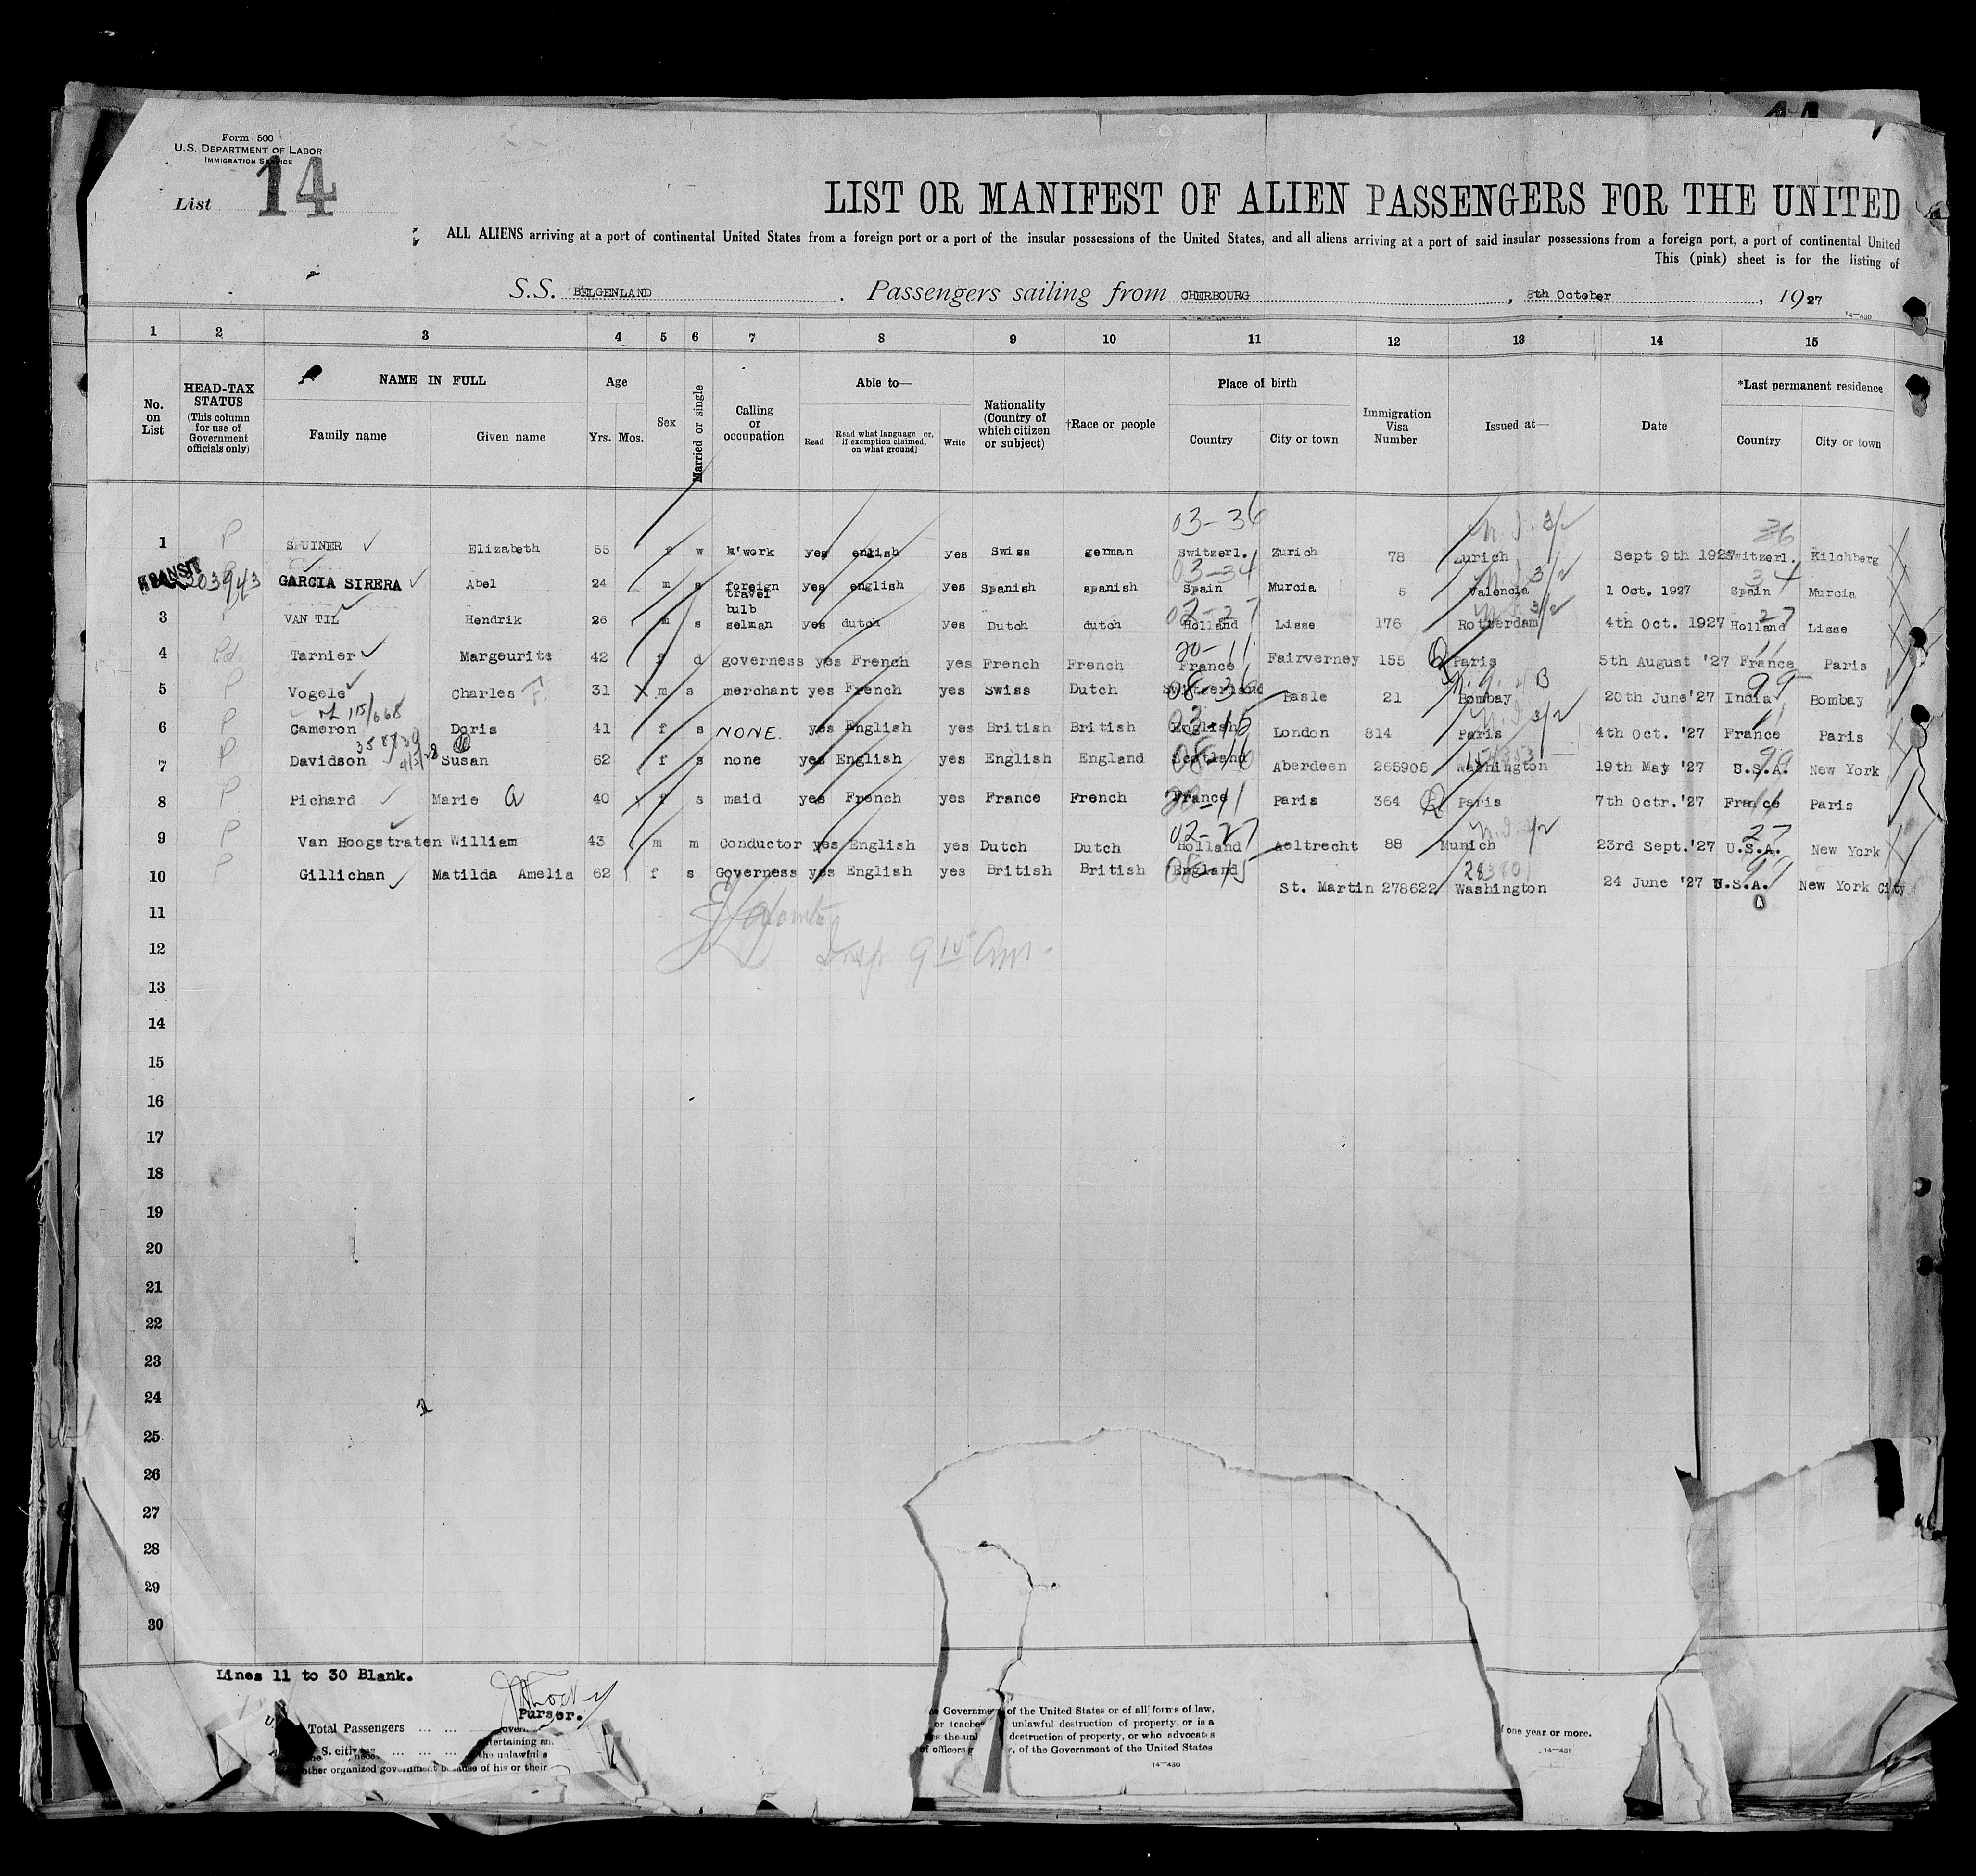 Form 500
U.S. DEPARTMENT OF LABOR
IMMIGRATION SERVICE
List 14
LIST OR MANIFEST OF ALIEN PASSENGERS FOR THE UNITED
ALL ALIENS arriving at a port of continental United States from a foreign port or a port of the insular possessions of the United States, and all aliens arriving at a port of said insular possessions from a foreign port, a port of continental United
This (pink) sheet is for the listing of
S.S. BELGENLAND Passengers sailing from CHERBOURG, 8th October, 1927
14-430
1 2 3 4 5 6 7 8 9 10 11 12 13 14 15
No. on List
HEAD-TAX STATUS (This column for use of Government officials only)
NAME IN FULL
Family name Given name
Age
Yrs. Mos.
Sex
Married or single
Calling or occupation
Able to—
Read Read what language [or, if exemption claimed, on what ground] Write
Nationality (Country of which citizen or subject)
†Race or people
Place of birth
Country City or town
Immigration Visa Number
Issued at—
Date
*Last permanent residence
Country City or town
03-36 36
1 P SPUINER Elizabeth 55 f w h'work yes enlish yes Swiss german Switzerl. Zurich 78 Zurich Sept 9th 1927 Switzerl. Kilchberg
TRANSIT 03-34 3/2 34
203943 GARCIA SIRERA Abel 24 m s foreign travel yes english yes Spanish spanish Spain Murcia 5 Valencia 1 Oct. 1927 Spain Murcia
02-27 3/2 27
3 VAN TIL Hendrik 26 m s bulb selman yes dutch yes Dutch dutch Holland Lisse 176 Rotterdam 4th Oct. 1927 Holland Lisse
20-11 11
4 Pd Tarnier Margeurite 42 f d governess yes French yes French French France Fairverney 155 Paris 5th August '27 France Paris
08-36 99
5 P Vogele Charles F. 31 m s merchant yes French yes Swiss Dutch Switzerland Basle 21 Bombay 20th June'27 India Bombay
03-16 3/2 11
6 P Cameron Doris 41 f s NONE. yes English yes British British English London 814 Paris 4th Oct. '27 France Paris
08-16 99
7 P Davidson Susan 62 f s none yes English yes English England Scotland Aberdeen 265905 Washington 19th May '27 U.S.A. New York
8 P Pichard Marie a 40 f s maid yes French yes France French France Paris 364 Paris 7th Octr.'27 France Paris
02-27 27
9 P Van Hoogstraten William 43 m m Conductor yes English yes Dutch Dutch Holland Aeltrecht 88 Munich 23rd Sept.'27 U.S.A. New York
08-15 99
10 P Gillichan Matilda Amelia 62 f s Governess yes English yes British British England St. Martin 278622 Washington 24 June '27 U.S.A. New York City
11
12 9 15 Am-
13
14
15
16
17
18
19
20
21
22
23
24
25
26
27
28
29
30
Lines 11 to 30 Blank.
Purser.
Total Passengers
S. citiz
the unlawful
other organized government because of his or their
Governme of the United States or of all forms of law,
or teache unlawful destruction of property, or is a
destruction of property, or who advocates
of officers , of the Government of the United States
14-430
of one year or more.
14-431